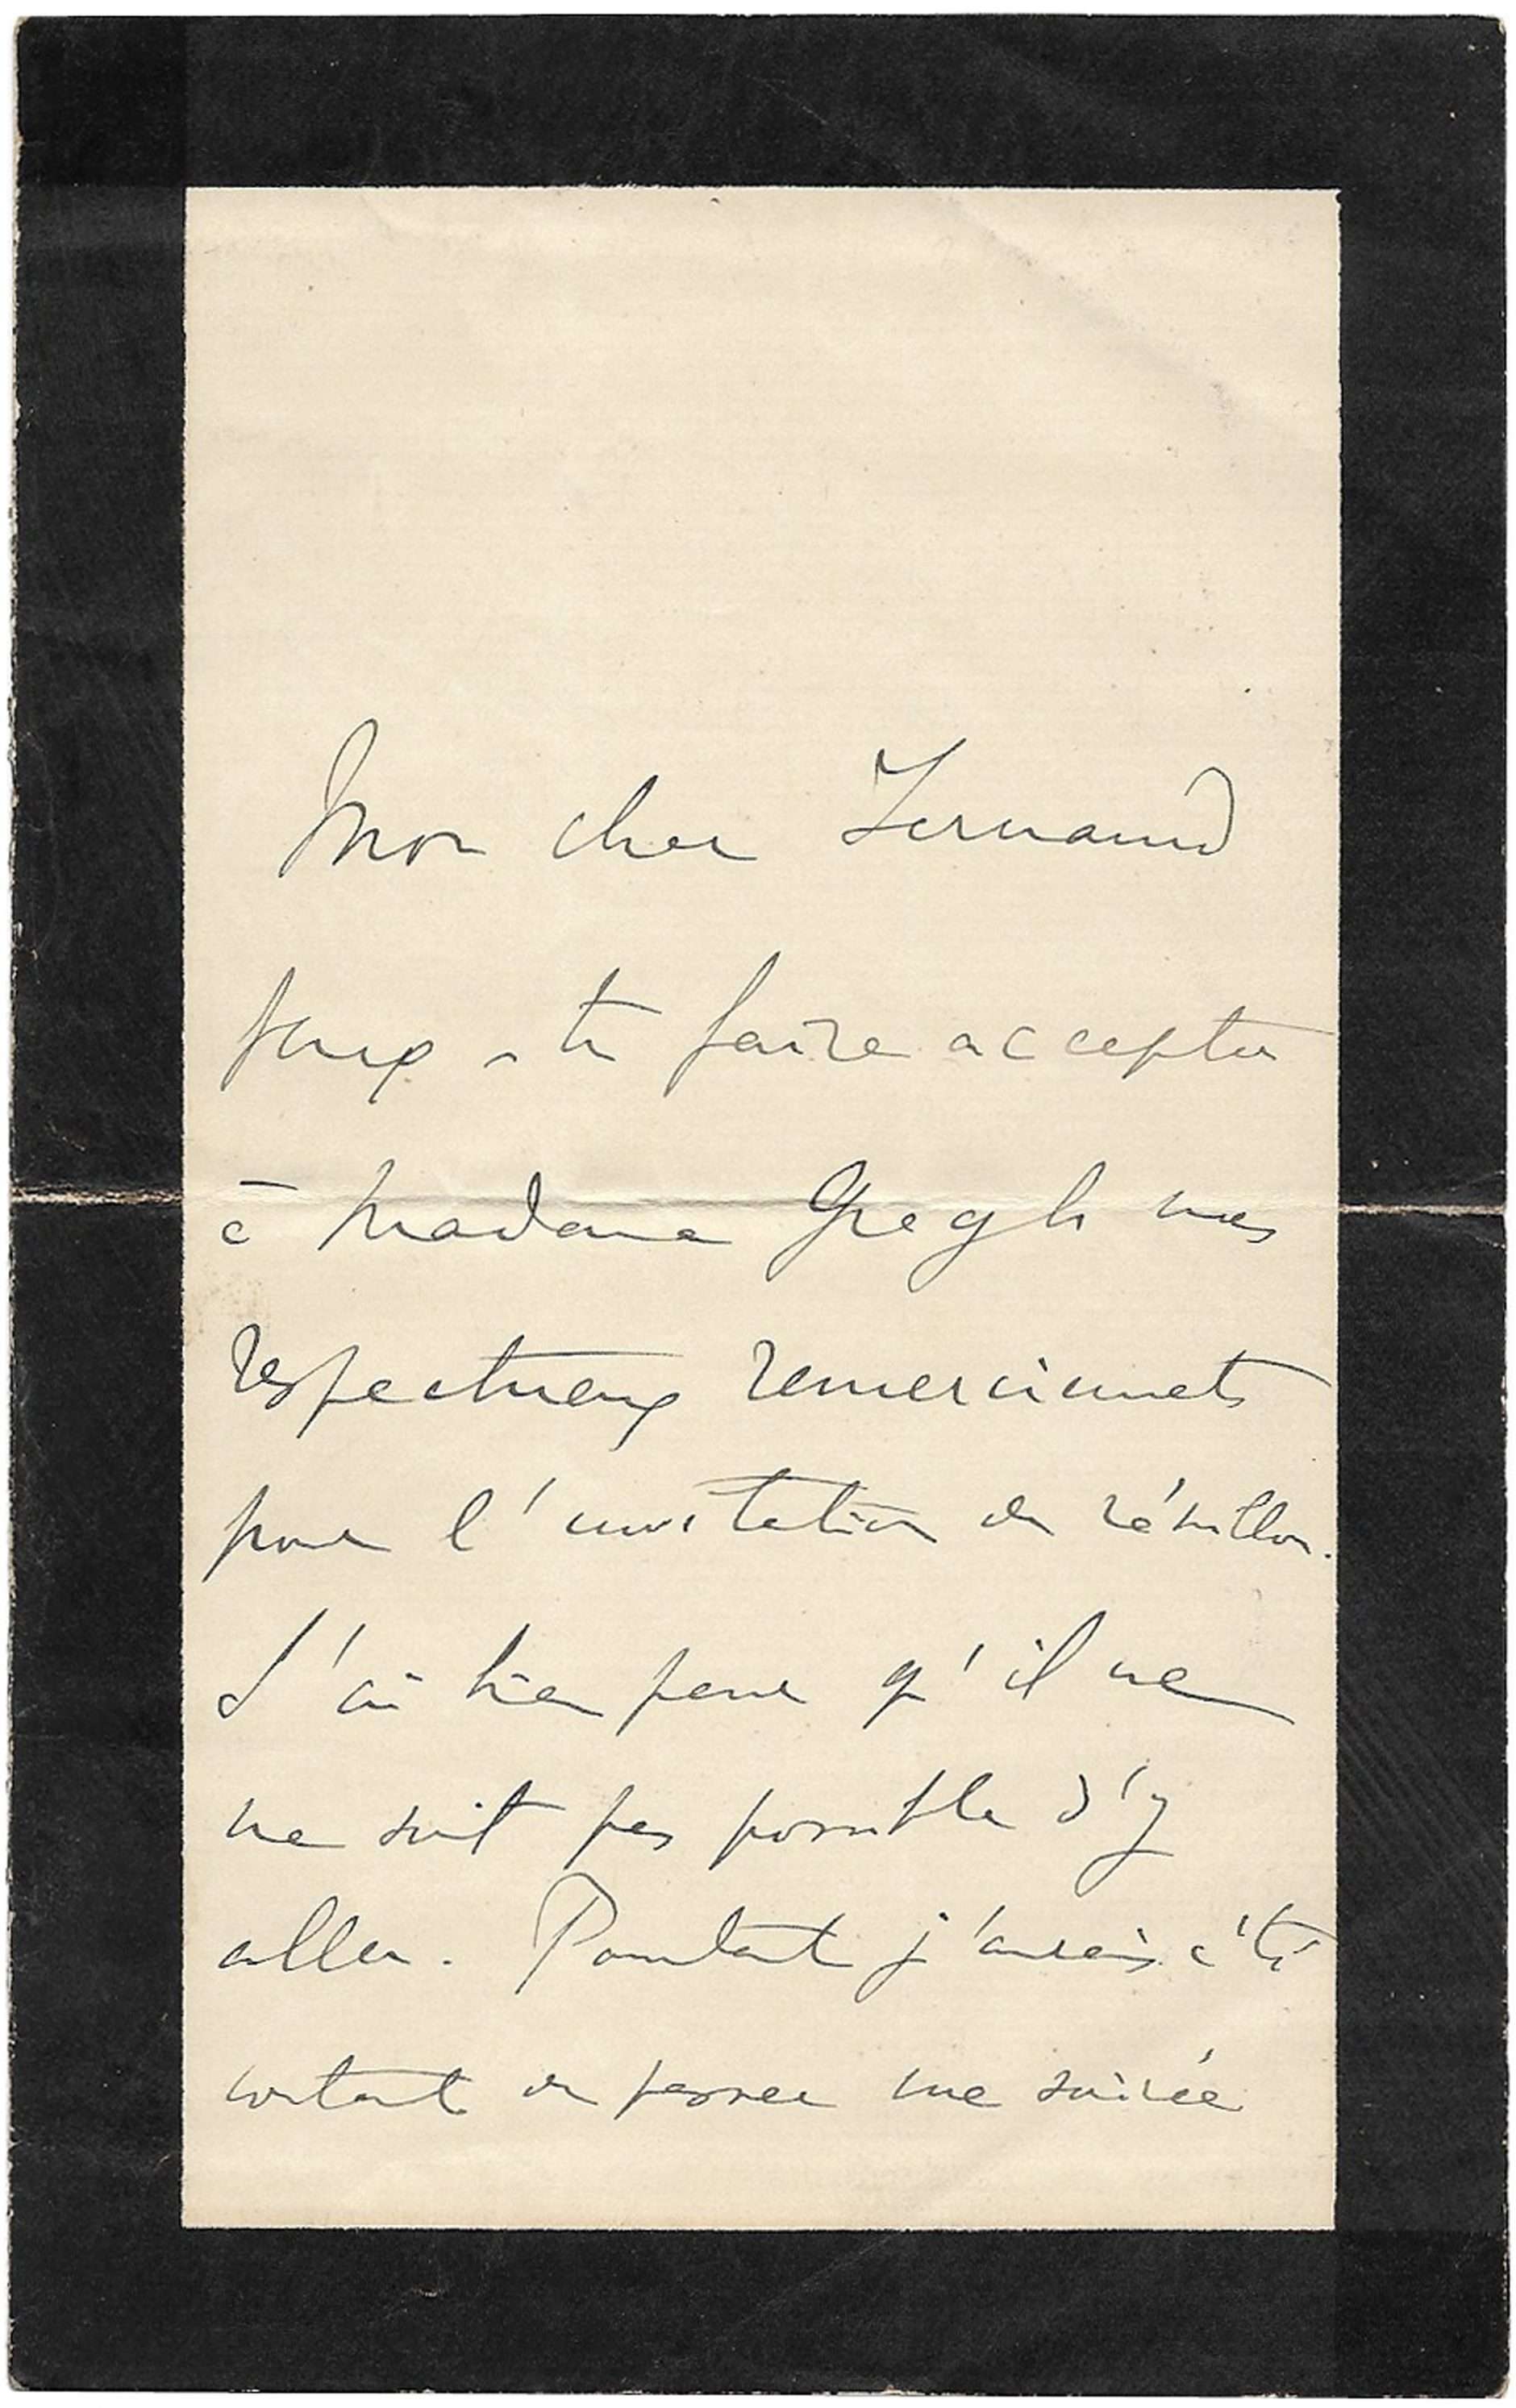 Mon cher Fernand
peux-tu faire accepter
à Madame Gregh mes
respectueux remerciements
pour l'invitation de réveillon.
J'ai bien peur qu'il ne
me soit pas possible d'y
aller. Pourtant j'aurais été
content de passer une soirée